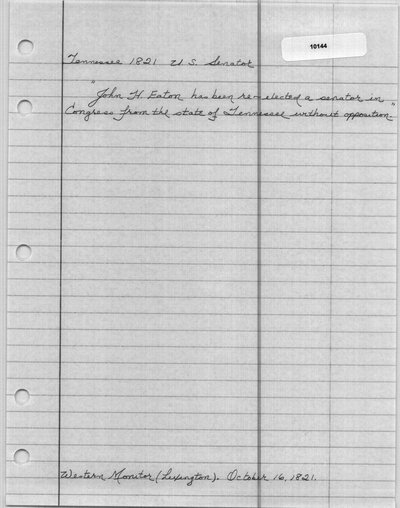 10144
Tennessee 1821 U.S. Senator
"John H. Eaton has been re-elected a senator in
Congress from the state of Tennessee without opposition."
Western Monitor (Lexington). October 16, 1821.